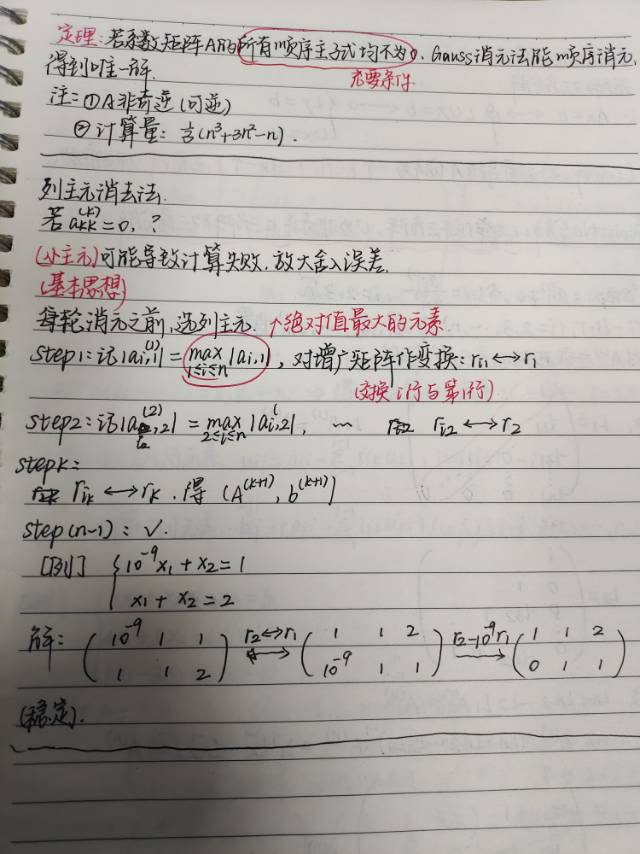 定理:若系数矩阵A的所有顺序主子式均不为0,Gauss消元法能顺序消元,
得到唯一解.
充要条件
注:①A非奇异(可逆)
②计算量:⅓(n³+3n²-n).
列主元消去法.
若a_kk^(k)=0,?
(小主元)可能导致计算失败,放大舍入误差.
(基本思想)
每轮消元之前,选列主元. ↑绝对值最大的元素
step1:记|a_i1,1^(1)|=max_{1≤i≤n}|a_i,1|,对增广矩阵作变换:r_i1↔r_1
(交换i行与第1行)
step2:记|a_i2,2^(2)|=max_{2≤i≤n}|a_i,2|, … r_i2↔r_2
stepk:
r_ik↔r_k.得(A^(k+1),b^(k+1))
step(n-1):√.
[例] {10⁻⁹x₁+x₂=1
x₁+x₂=2
解:(10⁻⁹ 1 1; 1 1 2) r₂↔r₁ (1 1 2; 10⁻⁹ 1 1) r₂-10⁻⁹r₁ → (1 1 2; 0 1 1)
(稳定).